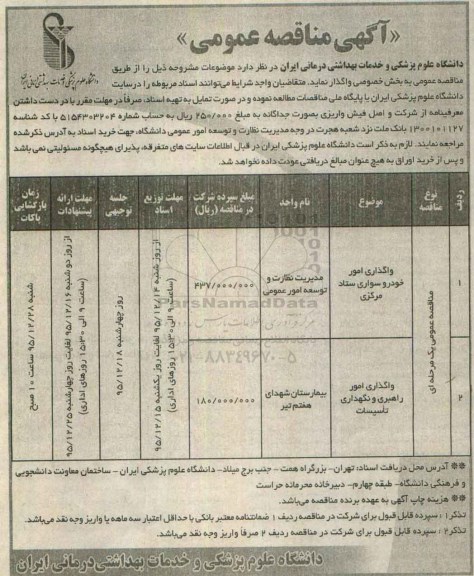 «آگهی مناقصه عمومی»
دانشگاه علوم پزشکی و خدمات بهداشتی درمانی ایران
دانشگاه علوم پزشکی و خدمات بهداشتی درمانی ایران در نظر دارد موضوعات مشروحه ذیل را از طریق
مناقصه عمومی به بخش خصوصی واگذار نماید. متقاضیان واجد شرایط می‌توانند اسناد مربوطه را در سایت
دانشگاه علوم پزشکی ایران یا پایگاه ملی مناقصات مطالعه نموده و در صورت تمایل به تهیه اسناد، صرفاً در مهلت مقرر با در دست داشتن
معرفینامه از شرکت و اصل فیش واریزی بصورت جداگانه به مبلغ ۲۵۰/۰۰۰ ریال به حساب شماره ۵۱۵۴۳۰۳۲۰۴ با کد شناسه
۱۳۰۰۱۰۱۱۲۷ بانک ملت نزد شعبه هجرت در وجه مدیریت نظارت و توسعه امور عمومی دانشگاه، جهت خرید اسناد به آدرس ذکر شده
مراجعه نمایند. لازم به ذکر است دانشگاه علوم پزشکی ایران در قبال اطلاعات سایت های متفرقه، پذیرای هیچگونه مسئولیتی نمی باشد
و پس از خرید اوراق به هیچ عنوان مبالغ دریافتی عودت داده نخواهد شد.
ردیف
نوع مناقصه
موضوع
نام واحد
مبلغ سپرده شرکت در مناقصه (ریال)
مهلت توزیع اسناد
جلسه توجیهی
مهلت ارائه پیشنهادات
زمان بازگشایی پاکات
۱
مناقصه عمومی یک مرحله ای
واگذاری امور
خودرو سواری ستاد
مرکزی
مدیریت نظارت و
توسعه امور عمومی
۴۳۷/۰۰۰/۰۰۰
از روز شنبه ۹۵/۱۲/۱۴ لغایت روز یکشنبه ۹۵/۱۲/۱۵
(ساعت ۹ الی ۱۵:۳۰ روزهای اداری)
روز چهارشنبه ۹۵/۱۲/۱۸
از روز دوشنبه ۹۵/۱۲/۱۶ لغایت روز چهارشنبه ۹۵/۱۲/۲۵
(ساعت ۹ الی ۱۵:۳۰ روزهای اداری)
شنبه ۹۵/۱۲/۲۸ ساعت ۱۰ صبح
۲
واگذاری امور
راهبری و نگهداری
تأسیسات
بیمارستان شهدای
هفتم تیر
۱۸۰/۰۰۰/۰۰۰
ParsNamadData
۰۲۱-۸۸۳۴۹۶۷۰-۵
** آدرس محل دریافت اسناد: تهران- بزرگراه همت - جنب برج میلاد- دانشگاه علوم پزشکی ایران - ساختمان معاونت دانشجویی
و فرهنگی دانشگاه- طبقه چهارم- دبیرخانه محرمانه حراست
** هزینه چاپ آگهی به عهده برنده مناقصه می‌باشد.
تذکر۱: سپرده قابل قبول برای شرکت در مناقصه ردیف ۱ ضمانتنامه معتبر بانکی با حداقل اعتبار سه ماهه یا واریز وجه نقد می‌باشد.
تذکر۲: سپرده قابل قبول برای شرکت در مناقصه ردیف ۲ صرفاً واریز وجه نقد می‌باشد.
دانشگاه علوم پزشکی و خدمات بهداشتی درمانی ایران